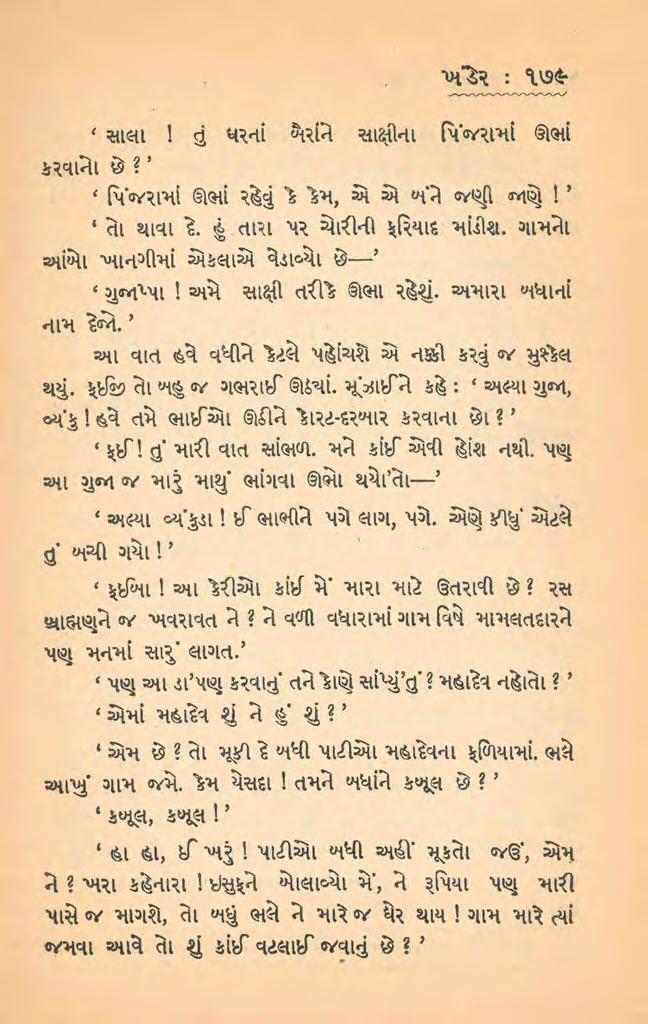 ખંડેર : ૧૭૯
‘ સાલા ! તું ઘરનાં બૈરાંને સાક્ષીના પિંજરામાં ઊભાં
કરવાનો છે ? ’
‘ પિંજરામાં ઊભાં રહેવું કે કેમ, એ એ બંને જણી જાણે ! ’
‘ તો થાવા દે. હું તારા પર ચોરીની ફરિયાદ માંડીશ. ગામનો
આંબો ખાનગીમાં એકલાએ વેડાવ્યો છે—’
‘ ગુજાપ્પા ! અમે સાક્ષી તરીકે ઊભા રહેશું. અમારા બધાનાં
નામ દેજો. ’
આ વાત હવે વધીને કેટલે પહોંચશે એ નક્કી કરવું જ મુશ્કેલ
થયું. ફઈજી તો બહુ જ ગભરાઈ ઊઠ્યાં. મૂંઝાઈને કહે : ‘ અલ્યા ગુજા,
વ્યંકુ ! હવે તમે ભાઈઓ ઊઠીને કોરટ-દરબાર કરવાના છો ? ’
‘ ફઈ ! તું મારી વાત સાંભળ. મને કાંઈ એવી હોંશ નથી. પણ
આ ગુજા જ મારું માથું ભાંગવા ઊભો થયો’તો—’
‘ અલ્યા વ્યંકુડા ! ઈ ભાભીને પગે લાગ, પગે. એણે કીધું એટલે
તું બચી ગયો ! ’
‘ ફઈબા ! આ કેરીઓ કાંઈ મેં મારા માટે ઉતરાવી છે ? રસ
બ્રાહ્મણને જ ખવરાવત ને ? ને વળી વધારામાં ગામ વિષે મામલતદારને
પણ મનમાં સારું લાગત.’
‘ પણ આ ડા’પણ કરવાનું તને કોણે સાંપ્યું’તું ? મહાદેવ નહોતો ? ’
‘ એમાં મહાદેવ શું ને હું શું ? ’
‘ એમ છે ? તો મૂકી દે બધી પાટીઓ મહાદેવના ફળિયામાં. ભલે
આખું ગામ જમે. કેમ યેસદા ! તમને બધાંને કબૂલ છે ? ’
‘ કબૂલ, કબૂલ ! ’
‘ હા હા, ઈ ખરું ! પાટીઓ બધી અહીં મૂકતો જઉં, એમ
ને ? ખરા કહેનારા ! ઇસુફને બોલાવ્યો મેં, ને રૂપિયા પણ મારી
પાસે જ માગશે, તો બધું ભલે ને મારે જ ઘેર થાય ! ગામ મારે ત્યાં
જમવા આવે તો શું કાંઈ વટલાઈ જવાનું છે ? ’